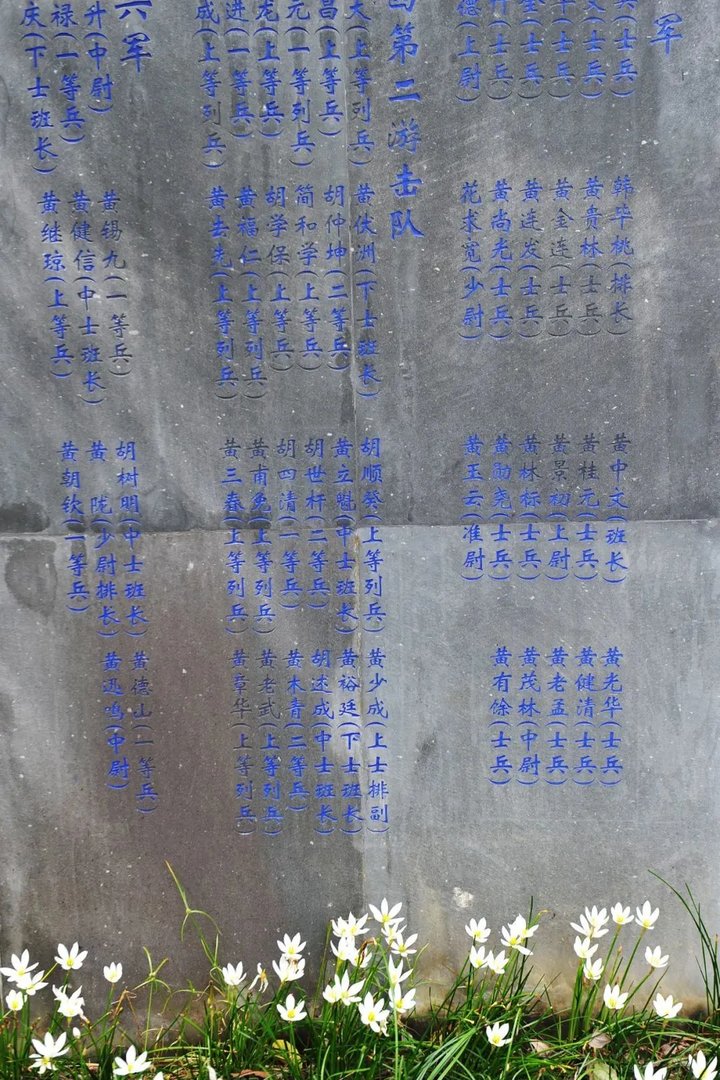 军
(士兵) 韩华桃(排长) 黄中文(班长) 黄光华(士兵)
文(士兵) 黄贵林(士兵) 黄桂元(士兵) 黄健清(士兵)
(士兵) 黄金连(士兵) 黄景初(上尉) 黄老孟(士兵)
(士兵) 黄连发(士兵) 黄林标(士兵) 黄茂林(中尉)
升(士兵) 黄尚光(士兵) 黄勋尧(士兵) 黄有馀(士兵)
德(上尉) 花求宽(少尉) 黄玉云(准尉)
第二游击队
大(上等列兵) 黄伏洲(下士班长) 胡顺癸(上等列兵) 黄少成(上士排副)
昌(上等兵) 胡仲坤(二等兵) 黄立魁(中士班长) 黄裕廷(下士班长)
元(一等列兵) 简和学(上等兵) 胡世杆(二等兵) 胡述成(中士班长)
龙(上等兵) 胡学保(上等兵) 胡四清(一等兵) 黄木青(二等兵)
进(一等兵) 黄福仁(上等列兵) 黄甫兔(上等列兵) 黄老武(上等列兵)
成(上等列兵) (上等列兵) 黄三春(上等列兵) 黄章华(上等列兵)
六军
升(中尉) 黄锡九(一等兵) 胡树明(中士班长) 黄德山(一等兵)
禄(一等兵) 黄健信(中士班长) 黄陇(少尉排长) 黄迅鸣(中尉)
庆(下士班长) 黄继琼(上等兵) 黄朝钦(一等兵)